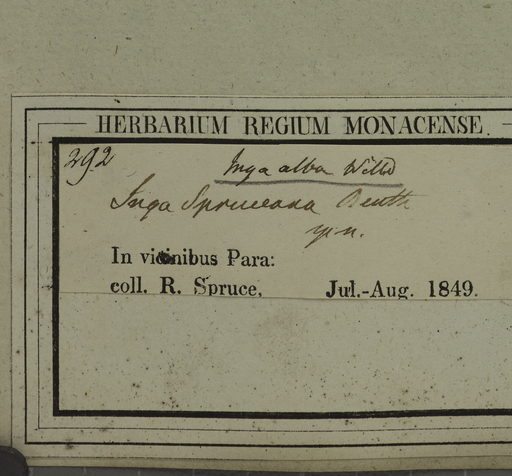 HERBARIUM REGIUM MONACENSE.
292 Inga alba Willd
Inga Spruceana Benth
sp. n.
In vicinibus Para:
coll. R. Spruce, Jul.-Aug. 1849.